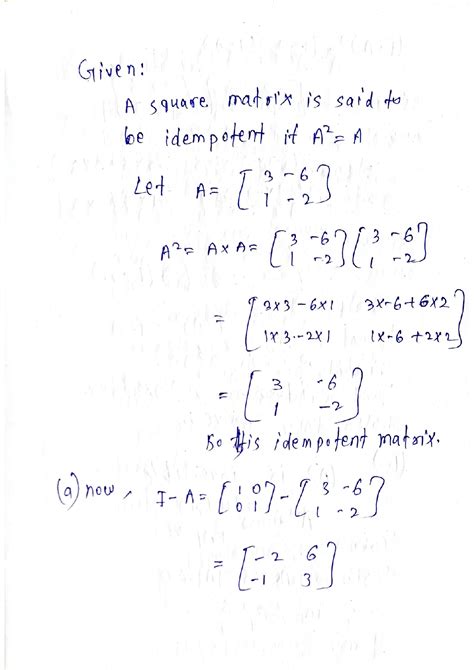 Given:
A square matrix is said to
be idempotent if A² = A
Let A = [ 3 -6
1 -2 ]
A² = A×A = [ 3 -6
1 -2 ] [ 3 -6
1 -2 ]
= [ 3×3 - 6×1 3×-6+6×2
1×3--2×1 1×-6+2×2 ]
= [ 3 -6
1 -2 ]
So is idempotent matrix.
(a) now, I-A = [ 1 0
0 1 ] - [ 3 -6
1 -2 ]
= [ -2 6
-1 3 ]